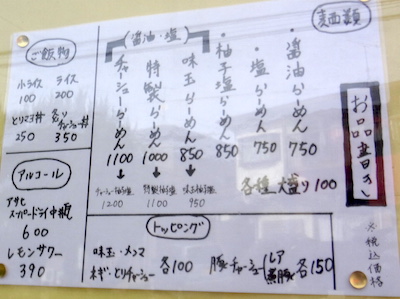 お品書き
※税込価格
麺類
・醤油らーめん 750
・塩らーめん 750
・柚子塩らーめん 850
(醤油・塩)
味玉らーめん 850
特製らーめん 1000
チャーシューらーめん 1100
↓
味玉柚子塩 950
↓
特製柚子塩 1000
↓
チャーシュー柚子塩 1200
各種大盛り100
トッピング
味玉・メンマ
ネギ・とりチャーシュー 各100
豚チャーシュー(レア 煮豚) 各150
ご飯物
小ライス 100
ライス 200
とりマヨ丼 250
炙りチャーシュー丼 350
アルコール
アサヒ
スーパードライ中瓶
600
レモンサワー
390